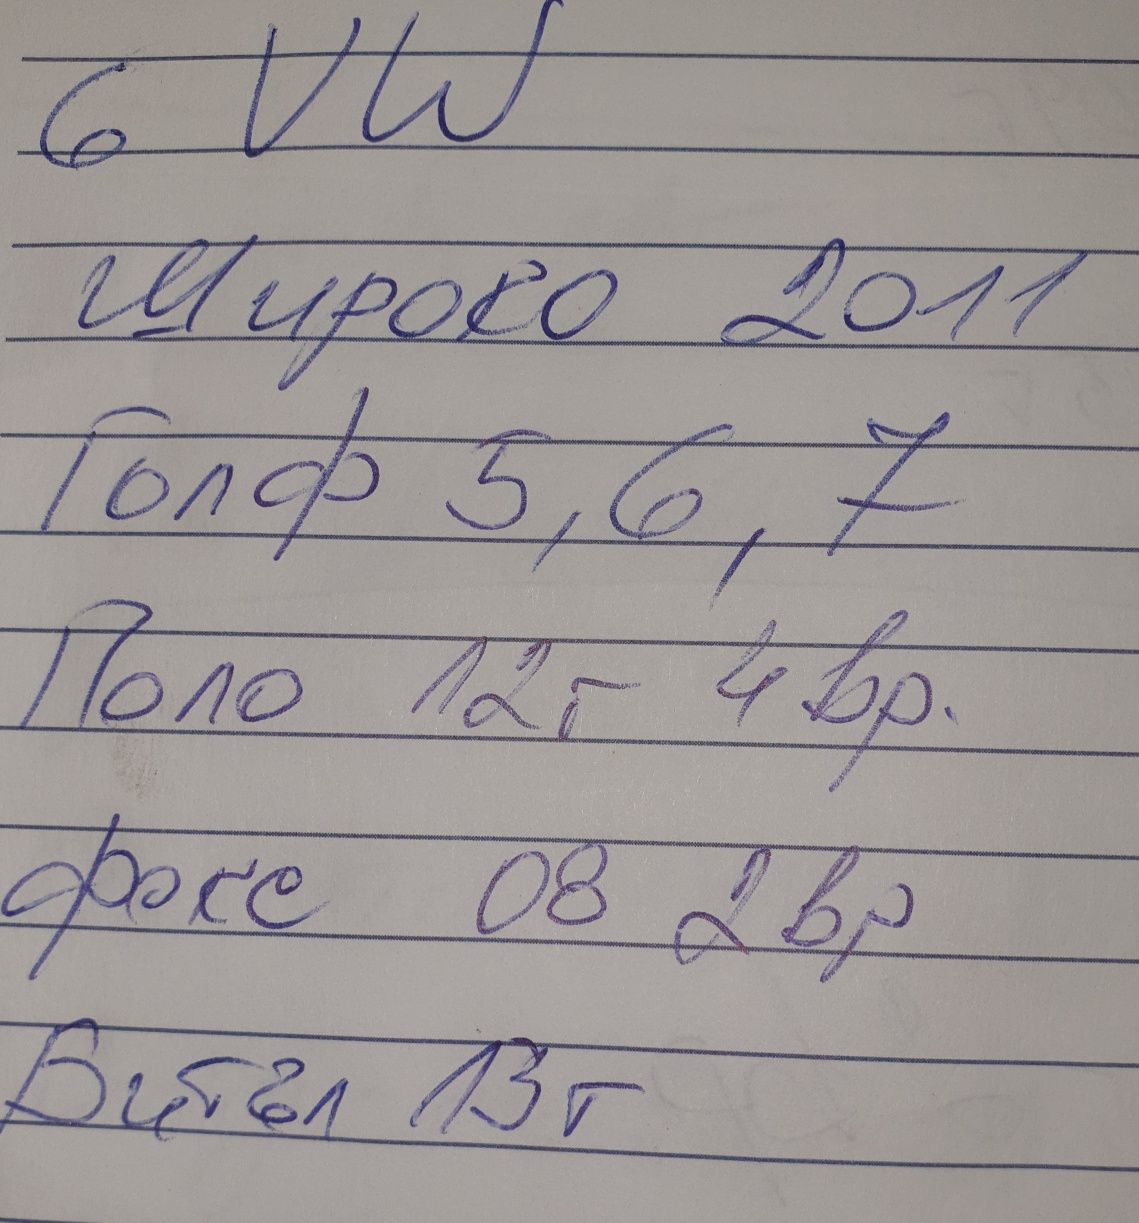 6 VW
Широко 2011
Голф 5, 6, 7
Поло 12г 4вр.
фокс 08 2вр
Битъл 13г